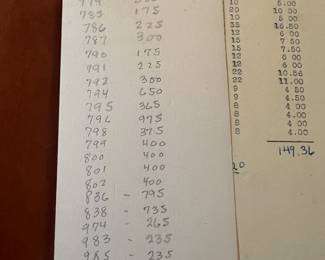 785 175
786 225
787 300
790 175
791 225
792 300
794 650
795 365
796 975
798 375
799 400
800 400
801 400
802 400
836 - 795
838 - 735
974 - 265
983 - 235
985 - 235
10 5.00
20 10 00
10 5 00
35 16.50
12 6 00
15 7.50
15 7.50
12 6 00
12 6 00
22 10.56
22 11.00
9 4 50
9 4.50
8 4 00
8 4 00
8 4 00
8 4.00
149.36
20